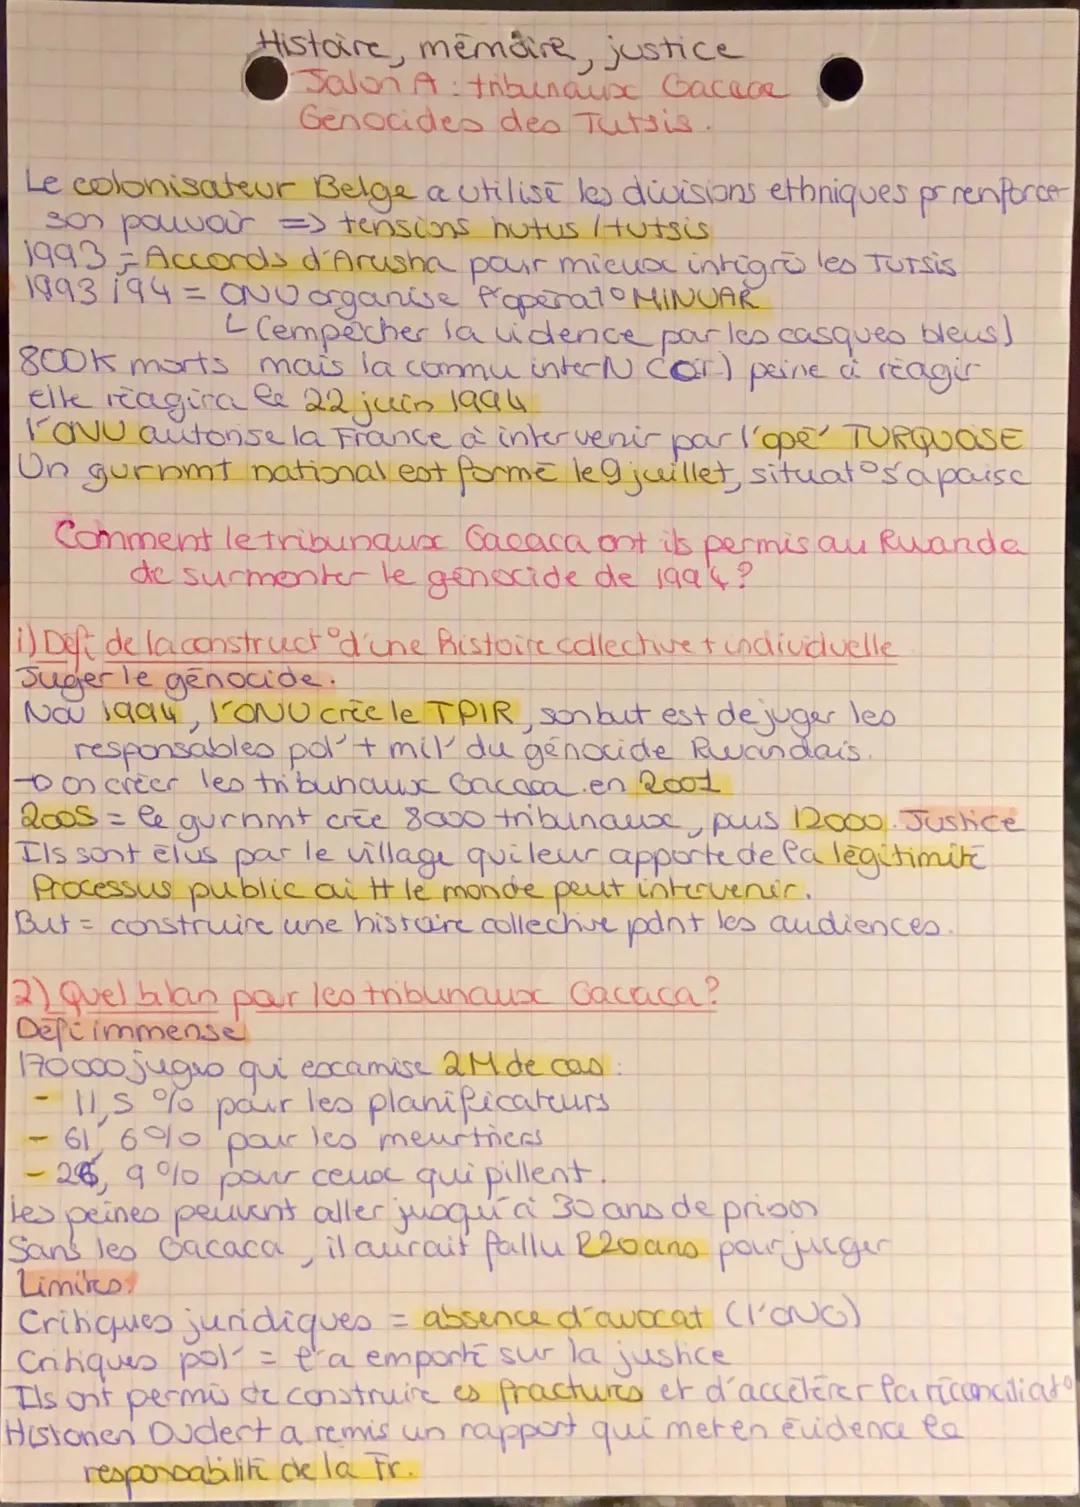 Histoire, mémoire, justice
Jalon A : tribunaux Gacaca
Génocides des Tutsis.
Le colonisateur Belge a utilisé les divisions ethniques pr renforcer
son pouvoir => tensions hutus / tutsis
1993 = Accords d'Arusha pour mieux intégré les Tutsis
1993/94 = ONU organise l'opérat° MINUAR
↳ (empêcher la violence par les casques bleus)
800K morts mais la commu interN peine à réagir
elle réagira le 22 juin 1994
l'ONU autorise la France à intervenir par l'opé' TURQUOISE
Un gurnmt national est formé le 9 juillet, situat° s'apaise
Comment le tribunaux Gacaca ont ils permis au Rwanda
de surmonter le génocide de 1994 ?
1) Défi de la construct° d'une histoire collective + individuelle
Juger le génocide.
Nov 1994, l'ONU crée le TPIR, son but est de juger les
responsables pol' + mil' du génocide Rwandais.
→ on créer les tribunaux Gacaca en 2001
2005 = le gurnmt crée 8000 tribunaux, puis 12000. Justice
Ils sont élus par le village qui leur apporte de la légitimité
Processus public où tt le monde peut intervenir.
But = construire une histoire collective pdnt les audiences.
2) Quel bilan pour les tribunaux Gacaca ?
Défi immense
170000 juges qui examise 2M de cas :
- 11,5 % pour les planificateurs
- 61,6% pour les meurtriers
- 26,9% pour ceux qui pillent.
Les peines peuvent aller jusqu'à 30 ans de prison
Sans les Gacaca, il aurait fallu 220 ans pour juger
Limites:
Critiques juridiques = absence d'avocat (l'ONG)
Critiques pol' = l'a emporté sur la justice
Ils ont permis de construire es fractures et d'accélérer la réconciliat°
Historien Duclert a remis un rapport qui met en évidence la
responsabilité de la Fr.